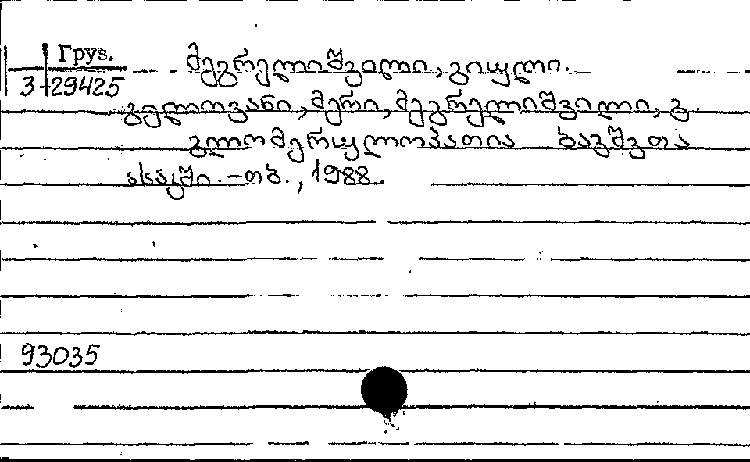 Груз.
3-29425
მეგრელიშვილი, გიული.
გელოვანი, მერი, მეგრელიშვილი, გ.
გლომერულოპათია ბავშვთა
ასაკში.-თბ., 1988.
93035